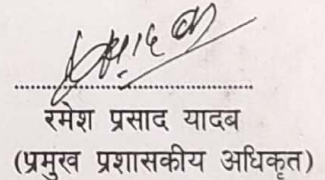 रमेश प्रसाद यादब
(प्रमुख प्रशासकीय अधिकृत)